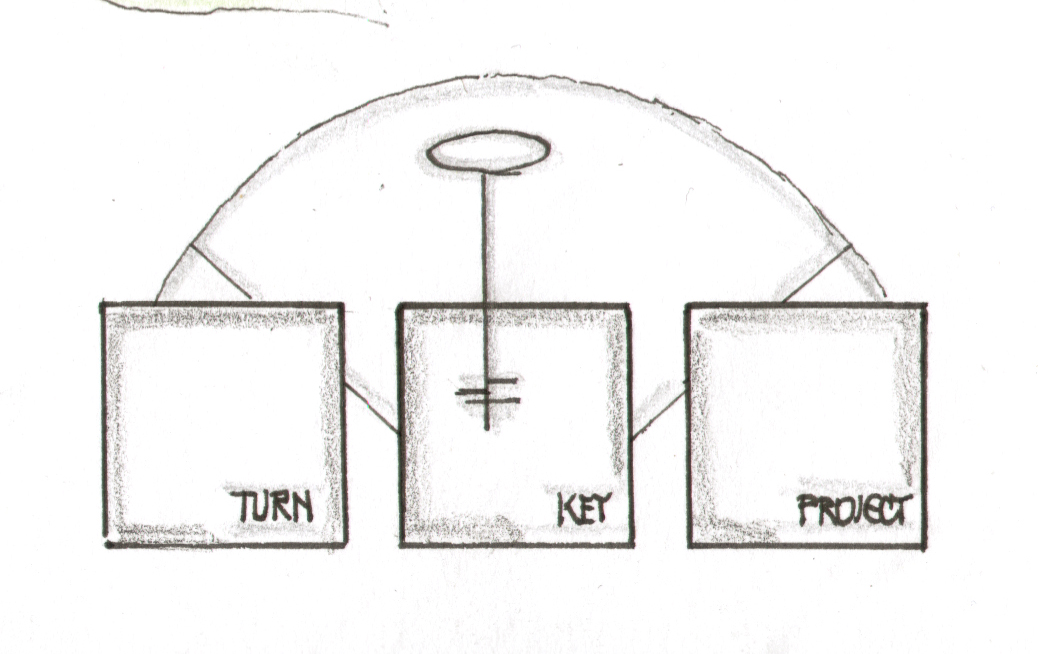 TURN KEY PROJECT